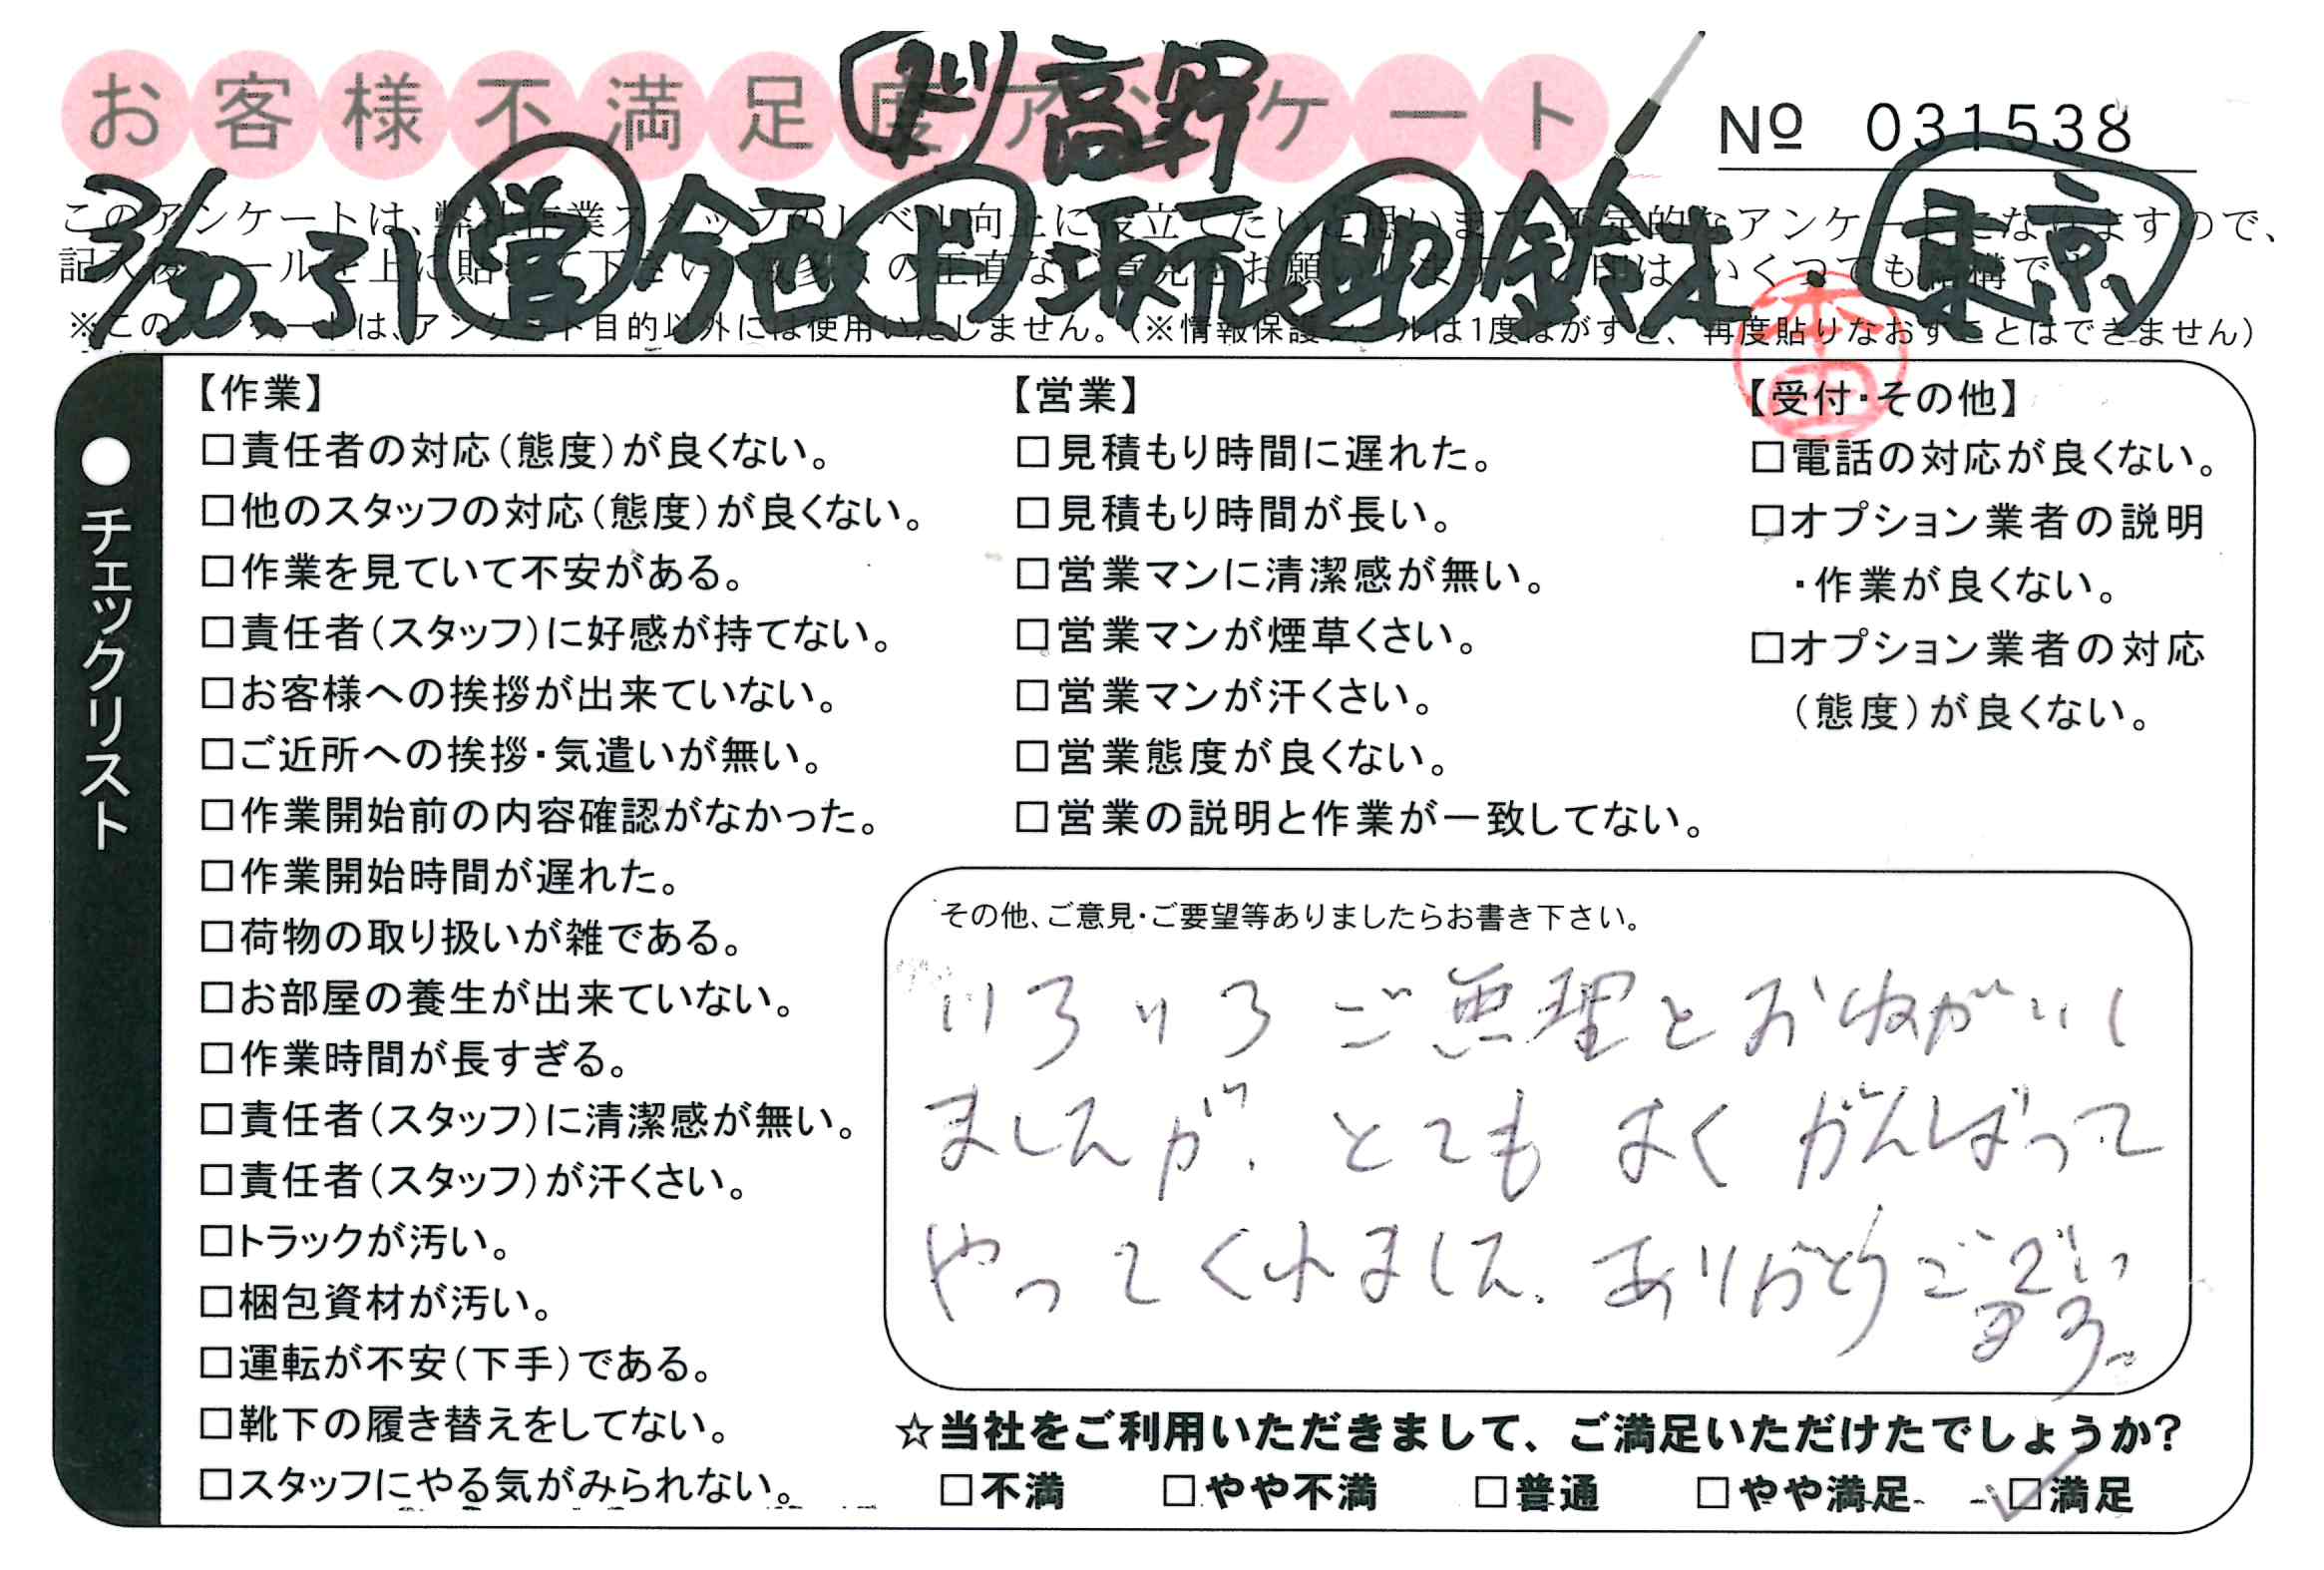 お客様不満足度アンケート
ド 高野
№ 031538
3/30、31 営 今西 上 坂元 助 鈴木・東京
このアンケートは、弊社作業スタッフのレベル向上に役立てたいと思います。否定的なアンケートになりますので、
記入後シールを上に貼って下さい。
※このアンケートは、アンケート目的以外には使用いたしません。（※情報保護シールは1度はがすと、再度貼りなおすことはできません）
●チェックリスト
【作業】
□責任者の対応（態度）が良くない。
□他のスタッフの対応（態度）が良くない。
□作業を見ていて不安がある。
□責任者（スタッフ）に好感が持てない。
□お客様への挨拶が出来ていない。
□ご近所への挨拶・気遣いが無い。
□作業開始前の内容確認がなかった。
□作業開始時間が遅れた。
□荷物の取り扱いが雑である。
□お部屋の養生が出来ていない。
□作業時間が長すぎる。
□責任者（スタッフ）に清潔感が無い。
□責任者（スタッフ）が汗くさい。
□トラックが汚い。
□梱包資材が汚い。
□運転が不安（下手）である。
□靴下の履き替えをしてない。
□スタッフにやる気がみられない。
【営業】
□見積もり時間に遅れた。
□見積もり時間が長い。
□営業マンに清潔感が無い。
□営業マンが煙草くさい。
□営業マンが汗くさい。
□営業態度が良くない。
□営業の説明と作業が一致してない。
【受付・その他】
□電話の対応が良くない。
□オプション業者の説明
・作業が良くない。
□オプション業者の対応
（態度）が良くない。
その他、ご意見・ご要望等ありましたらお書き下さい。
いろいろご無理とおねがいし
ましたが、とてもよくがんばって
やってくれました。ありがとうござい
ます。
☆当社をご利用いただきまして、ご満足いただけたでしょうか？
□不満 □やや不満 □普通 □やや満足 ☑満足